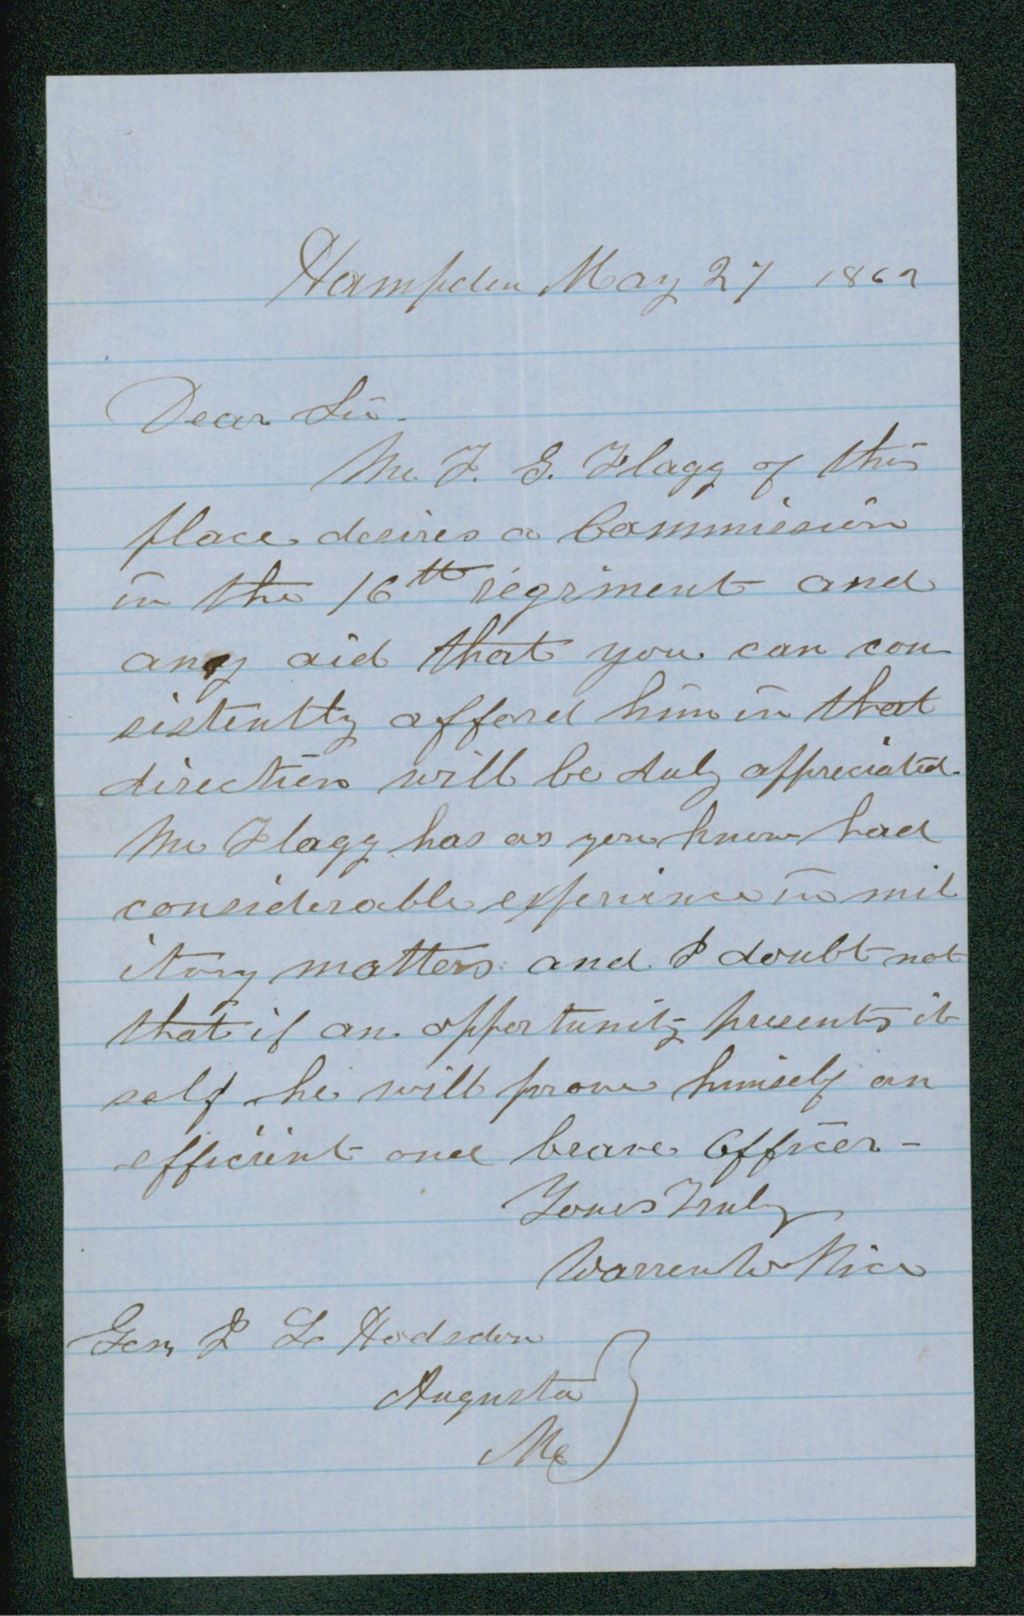 Hampden May 27 1862
Dear Sir.
Mr. F. G. Flagg of this
place desires a Commission
in the 16th regiment and
any aid that you can con
sistently afford him in that
direction will be duly appreciated.
Mr Flagg has as you know had
considerable experience in mil
itary matters and I doubt not
that if an opportunity presents it
self he will prove himself an
efficient and brave Officer -
Yours Truly
Warren W Rice
Gen J L Hodsdon
Augusta
Me